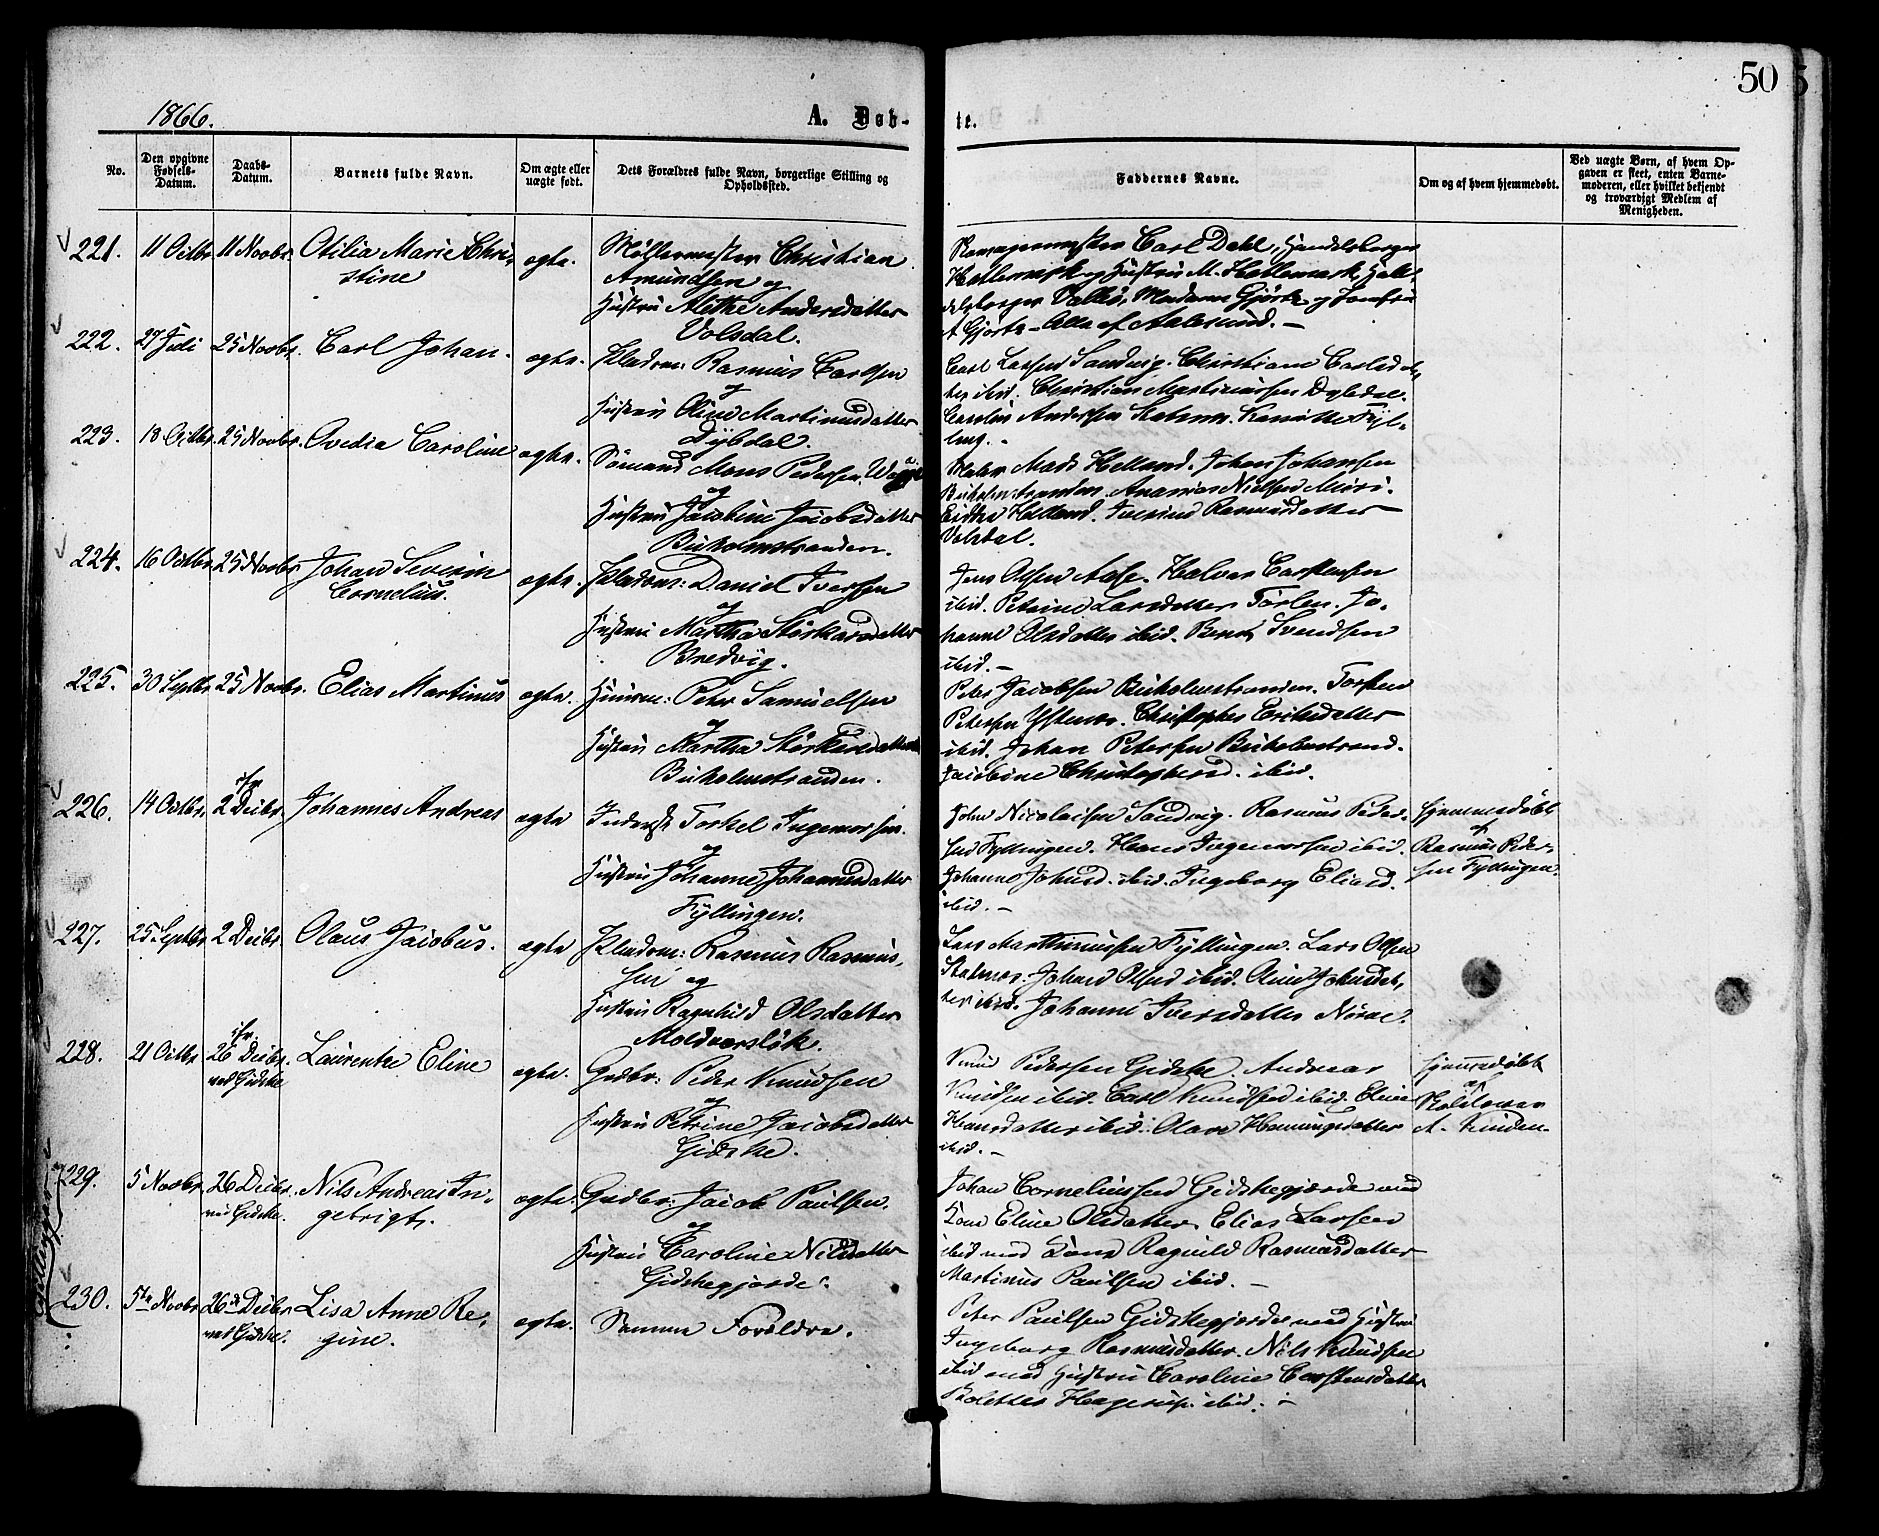 1866.
A. Døb-
te.
50
No.
Den opgivne Fødsels-Datum.
Daabs-Datum.
Barnets fulde Navn.
Om ægte eller uægte født.
Dets Forældres fulde Navn, borgerlige Stilling og Opholdssted.
Faddernes Navne.
Om og af hvem hjemmedøbt.
Ved uægte Børn, af hvem Opgaven er skeet, enten Barnemoderen, eller hvilket bekjendt og troværdigt Medlem af Menigheden.
221. 11 Octbr. 11 Novbr. Otilia Marie Chri-
stine
ægte. Møllermester Christian
Amundsen og
Hustru Alethe Andersdatter
Volsdal.
Carl Dahl, Handelsborger
Hellemark og Hustru M. Hellemark, Han-
delsborger Madame Gjørtz og Jomfru
A Gjørtz – Alle af Aalesund. –
222. 27 Juli 25 Novbr. Carl Johan.
ægte. Pladsm: Rasmus Carlsen
og
Hustru Oline Martinusdatter
Dybdal.
Carl Larsen Sandvig. Christiane Carlsdat-
ter ibid. Christian Martinussen Dybdal.
Andersen Fyl-
ling. –
223. 18 Octbr. 25 Novbr. Ovedia Caroline
ægte. Sømand Mons Pedersen
og
Hustru Jacobine Jacobsdatter
Buholmstranden.
Mads Helland. Johan Johansen
Buholmstranden. Ananias Nielsen
Helland. Rasmusdatter
Volsdal.
224. 16 Octbr. 25 Novbr. Johan Severin
Cornelius.
ægte. Pladsm: Daniel Iversen
og
Hustru Martha Størkersdatter
Bredvig.
Jens Olsen Aase. Halvor Carstensen
ibid. Petrine Larsdatter Jo-
hanne Olsdatter ibid. Bernt Svendsen
ibid. –
225. 30 Septbr. 25 Novbr. Elias Martinus
ægte. Peter Samuelsen
og
Hustru Martha Størkersdatter
Buholmstranden.
Peter Jacobsen Buholmstranden. Torsten
Petersen Ystenes. Eriksdatter
ibid. Johan Petersen Buholmstrand.
Jacobine Christophersd. ibid.
226. 14 Octbr. ifr 2 Decbr. Johannes Andreas
ægte Inderst Torkel Ingemorsen.
og
Hustru Johanne Johannesdatter
Fyllingen.
John Nicolaisen Sandvig. Rasmus Peder-
sen Fyllingen. Hans Ingemorsen ibid.
Johanne Johnsd. ibid. Ingeborg Eliasd.
ibid. –
Hjemmedøbt
af
Rasmus Peder-
sen Fyllingen.
227. 25 Septbr. 2 Decbr. Olaus Jacobus.
ægte Pladsm: Rasmus Rasmus-
sen og
Hustru Ragnhild Olsdatter
Moldværsløk.
Lars Marthinussen Fyllingen. Lars Olsen
Johan Olsen ibid. Johnsdat-
ter ibid. Johanne Iversdatter Nørve.
228. 21 Octbr. ifr 26 Decbr.
ved Gidske
Laurentze Eline
ægte. Grdbr: Peder Knudsen
og
Hustru Petrine Jacobsdatter
Gidske.
Knud Pedersen Gidske. Andreas
Knudsen ibid. Carl Knudsen ibid. Eline
Hansdatter ibid: Henningsdatter
ibid. –
Hjemmedøbt
af
229. 5 Novbr. 26 Decbr.
ved Gidske.
Nils Andreas In-
gebrigt.
ægte. Grdbr: Jacob Paulsen.
og
Hustru Caroline Nilsdatter
Gidskegjorde.
Johan Corneliussen Gidskegjerde med
Kone Eline Olsdatter. Elias Larsen
ibid med Kone Ragnild Rasmusdatter
Martinus Paulsen ibid. –
230. 5te Novbr 26de Decbr
ved Gidske.
Lisa Anne Re-
gine.
ægte. Samme Forældre.
Peter Paulsen Gidskegjerde med Hustru
Ingeborg Rasmusdatter. Nils Knudsen
ibid med Hustru Caroline Carstensdatter
Hagerup. ibid. –